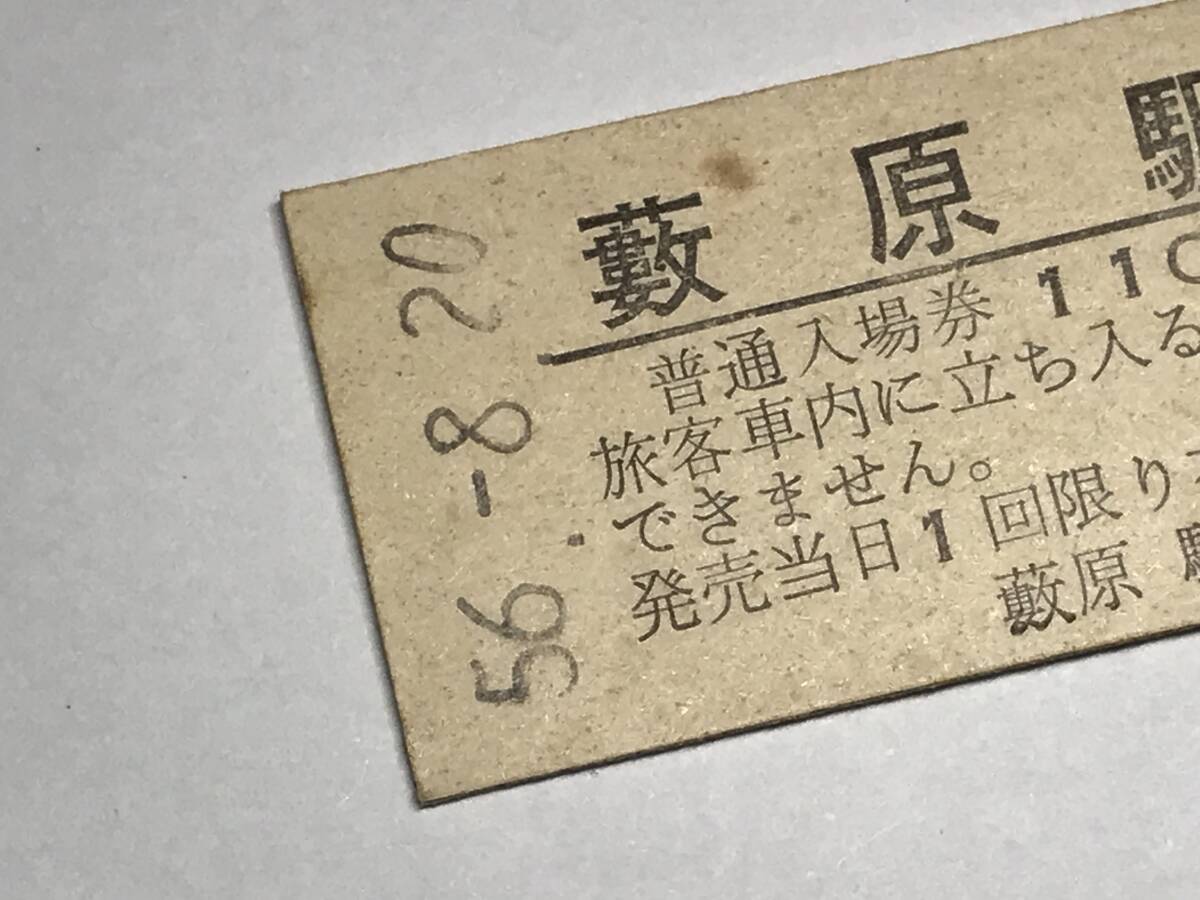 藪原駅
普通入場券 110
旅客車内に立ち入る
できません。
発売当日1回限り
藪原 駅
56.-8 20